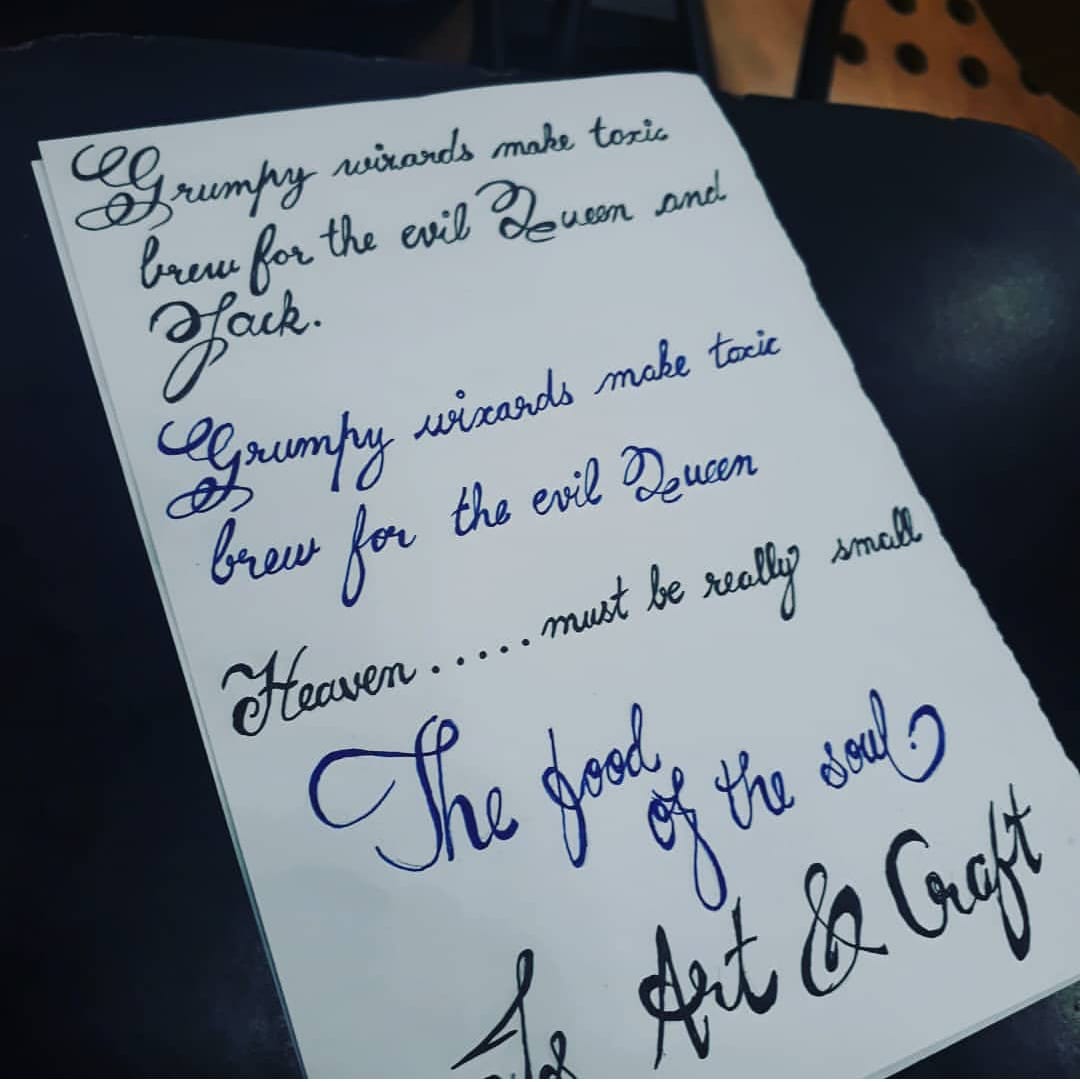 Grumpy wizards make toxic
brew for the evil Queen and
Jack.
Grumpy wizards make toxic
brew for the evil Queen
Heaven.....must be really small
The food
of the soul
Art & Craft